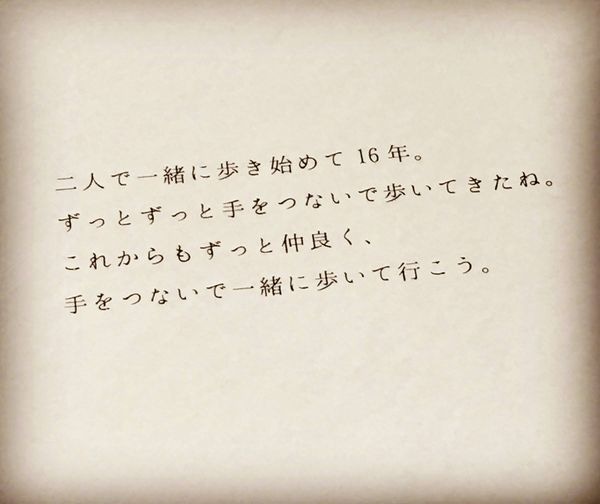 二人で一緒に歩き始めて16年。
ずっとずっと手をつないで歩いてきたね。
これからもずっと仲良く、
手をつないで一緒に歩いて行こう。